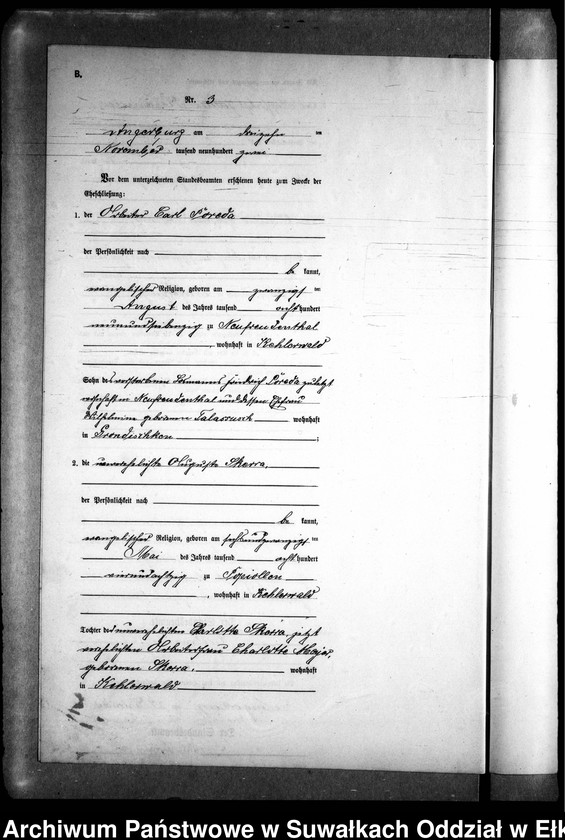 B.
Nr. 3
Angerburg am dreizehn ten
November tausend neunhundert zwei
Vor dem unterzeichneten Standesbeamten erschienen heute zum Zwecke der
Eheschließung:
1. der Arbeiter Carl Poreda
der Persönlichkeit nach
be kannt,
evangelischer Religion, geboren am zwanzigst en
August des Jahres tausend acht hundert
neunundsiebenzig zu Neufreudenthal
, wohnhaft in Kehlerwald
Sohn des verstorbenen Losmanns Friedrich Poreda zuletzt
wohnhaft in Neufreudenthal und dessen Ehefrau
Wilhelmine geborenen wohnhaft
in Grondischken ;
2. die unverehelichte Auguste Skerra,
der Persönlichkeit nach
be kannt,
evangelischer Religion, geboren am sechsundzwanzigst en
Mai des Jahres tausend acht hundert
vierundachtzig zu Popiollen
, wohnhaft in Kehlerwald
Tochter der unverehelichten Charlotte Skerra, jetzt
verehelichten Arbeiterfrau Charlotte
geborenen Skerra, wohnhaft
in Kehlerwald
Archiwum Państwowe w Suwałkach Oddział w Ełk